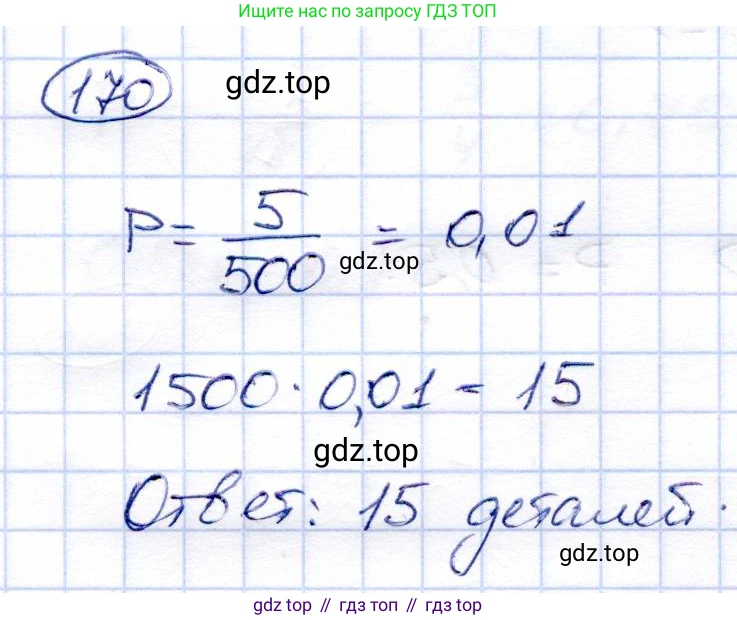 Ищите нас по запросу ГДЗ ТОП
170 gdz.top
P = 5/500 = 0,01
gdz.top
1500 · 0,01 = 15
gdz.top
Ответ: 15 деталей.
gdz.top
gdz top // гдз топ // gdz top